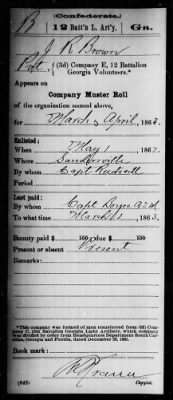 (Confederate.)
B 12 Batt'n L. Art'y. Ga.
J R Brown
Pvt, (3d) Company E, 12 Battalion
Georgia Volunteers.*
Appears on
Company Muster Roll
of the organization named above,
for March & April, 1863.
Enlisted:
When May 1, 1862.
Where Sandersville
By whom Capt Rudisill
Period
Last paid:
By whom Capt
To what time March 1, 1863.
Bounty paid $ 100 ; due $ 100
Present or absent Present
Remarks:
*This company was formed of men transferred from (2d)
Company C, 12th Battalion Georgia Light Artillery, which company
was ordered to be divided by order from Headquarters Department South Caro-
lina, Georgia and Florida, dated December 30, 1862.
Book mark:
(642) Copyist.